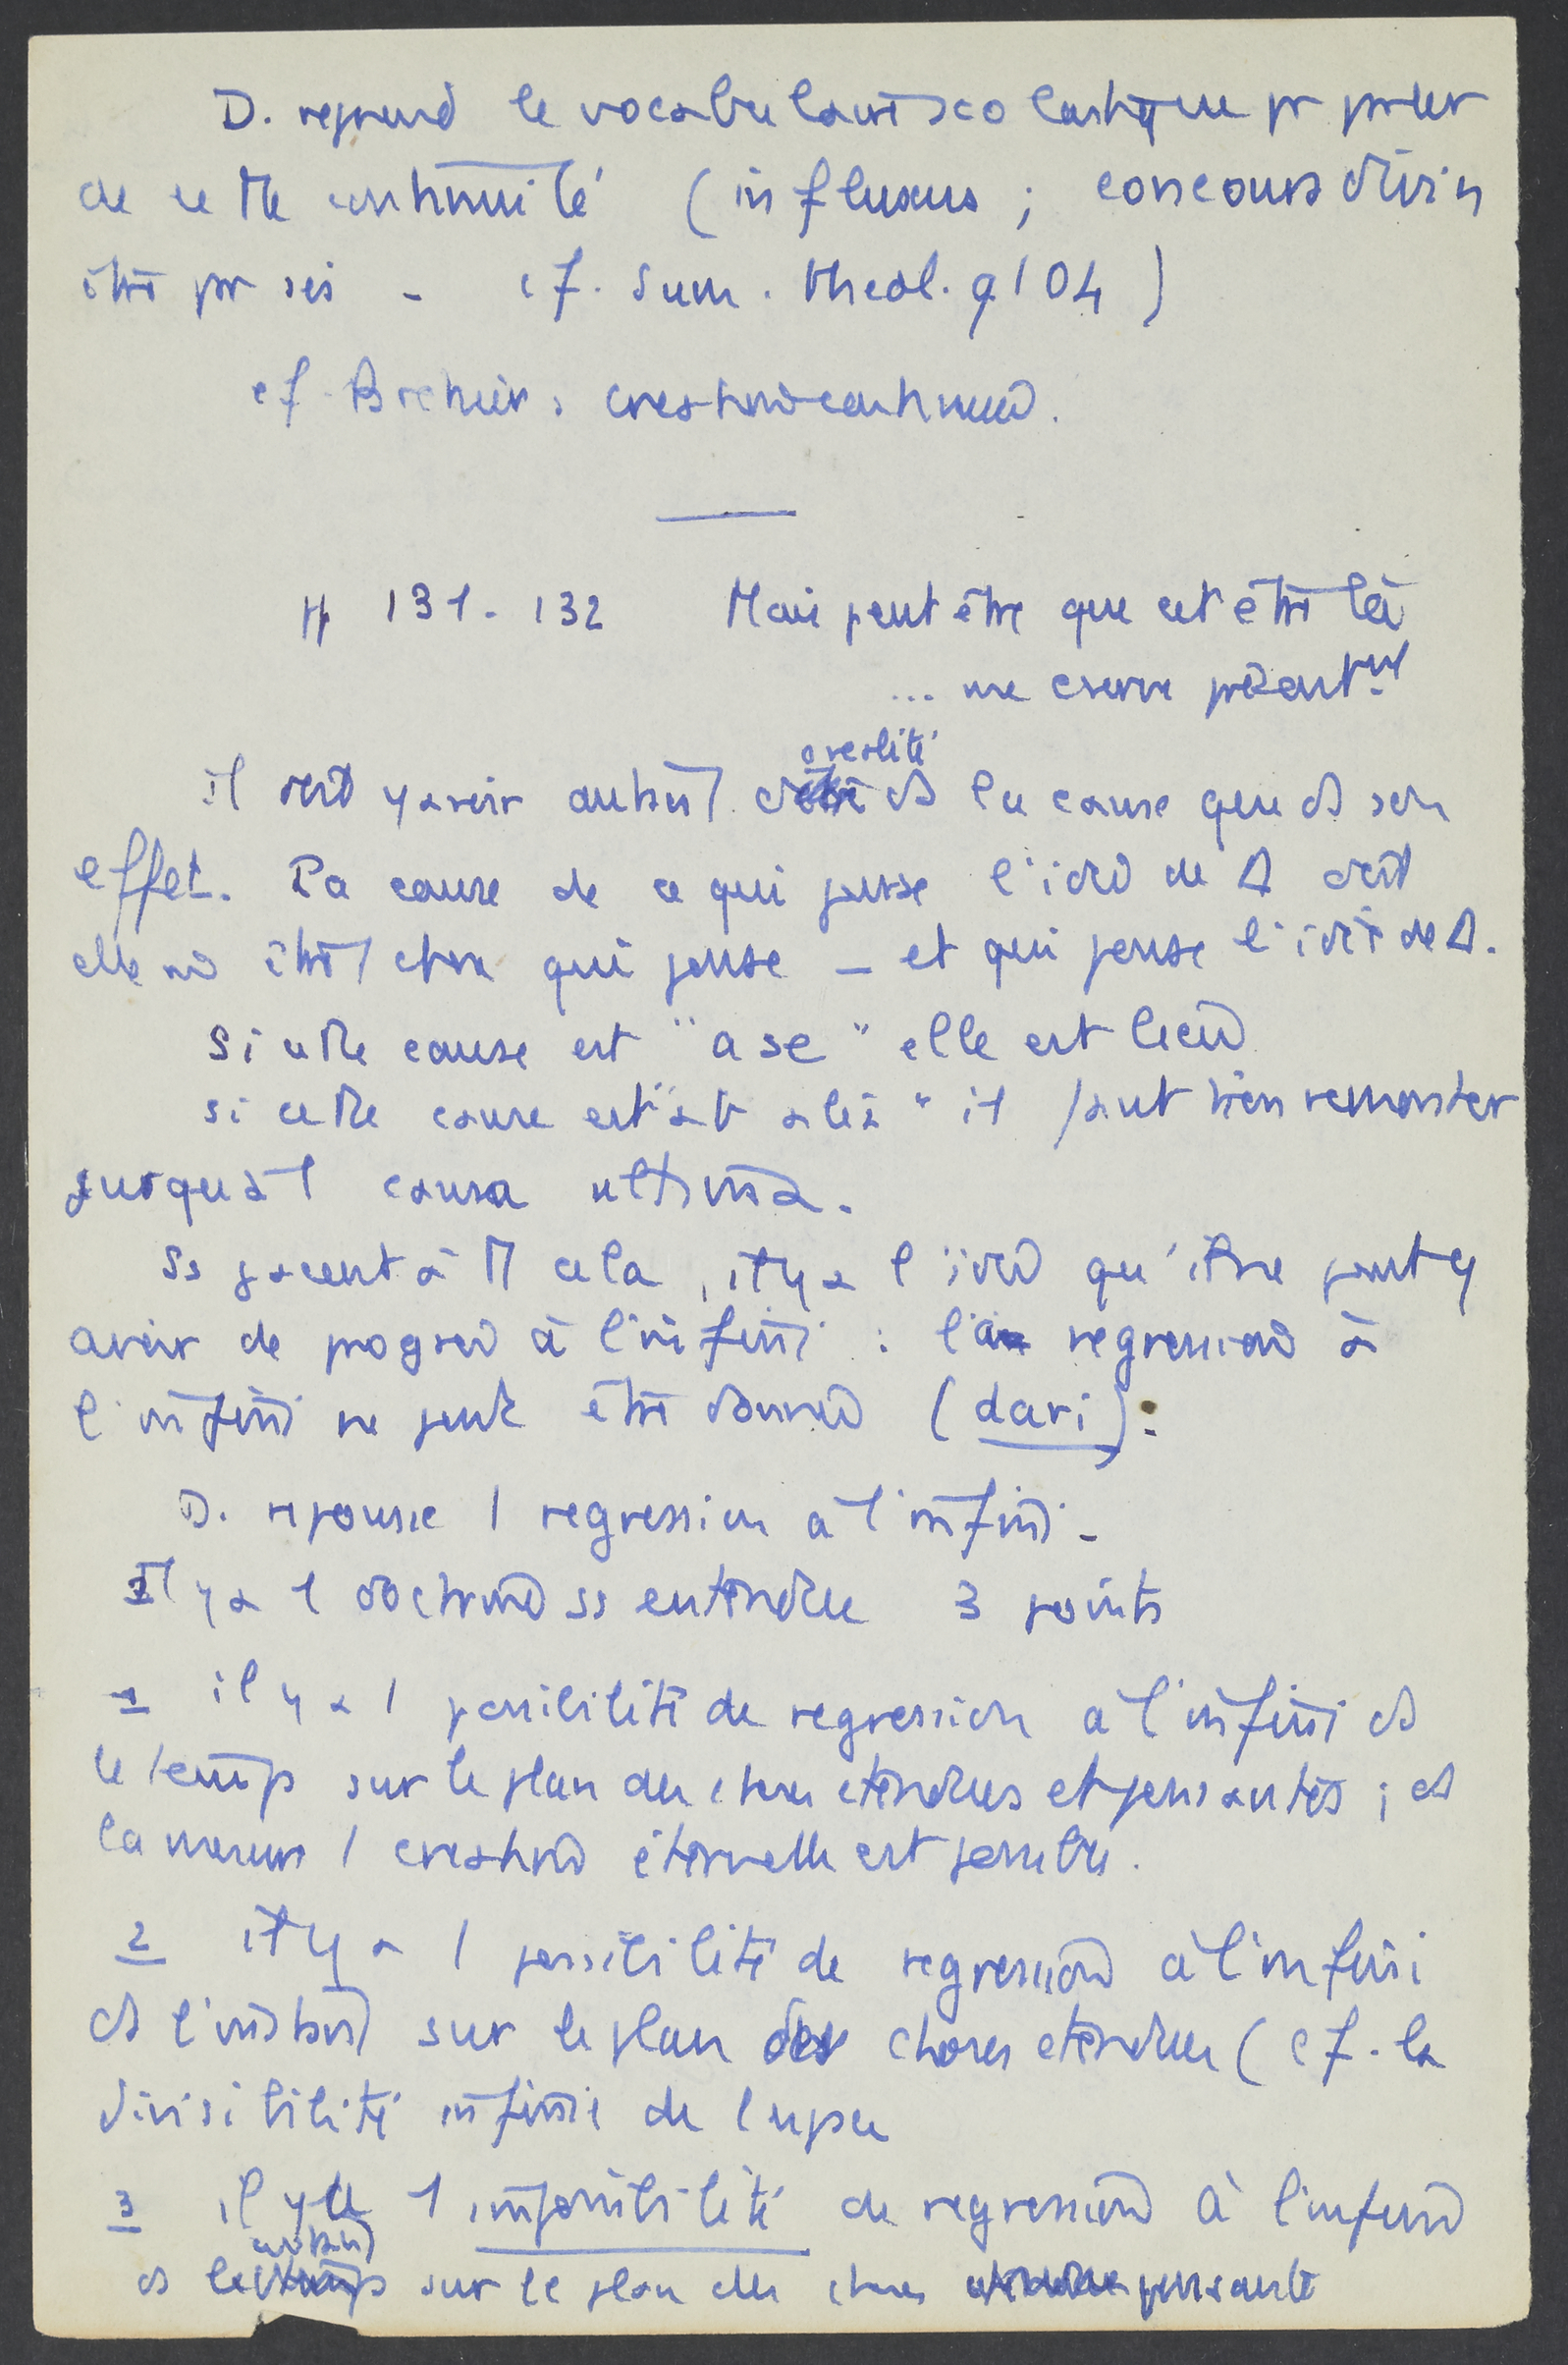 D. reprend le vocabulaire scolastique pr parler
de cette continuité (influxus ; concours divin
être par soi - cf. Sum. theol. q 104)
cf. Brehier : creation continuée.
p 131-132 Mais peut être que cet être là
... me conserve présentmt
il doit y avoir autant de realité ds la cause que ds son
effet. La cause de ce qui pense l'idée de D doit
elle mê être 1 chose qui pense - et qui pense l'idée de D.
Si cette cause est "a se" elle est Dieu
si cette cause est "ab alia" il faut bien remonter
jusqu'à 1 causa ultima.
Ss jacent à tt cela, il y a l'idée qu'il ne peut y
avoir de progrès à l'infini : la regression à
l'infini ne peut être donnée (dari) :
D. repousse 1 regression à l'infini -
Il y a 1 doctrine ss entendue 3 points
1 il y a 1 possibilité de regression à l'infini ds
le temps sur le plan des choses etendues et pensantes ; ds
la mesure 1 creation éternelle est possible.
2 il y a 1 possibilité de regression à l'infini
ds l'instant sur le plan des choses etendues (cf. la
divisibilité infinie de l'espace
3 il y a 1 impossibilité de regression à l'infini
ds l'instant sur le plan des choses pensantes